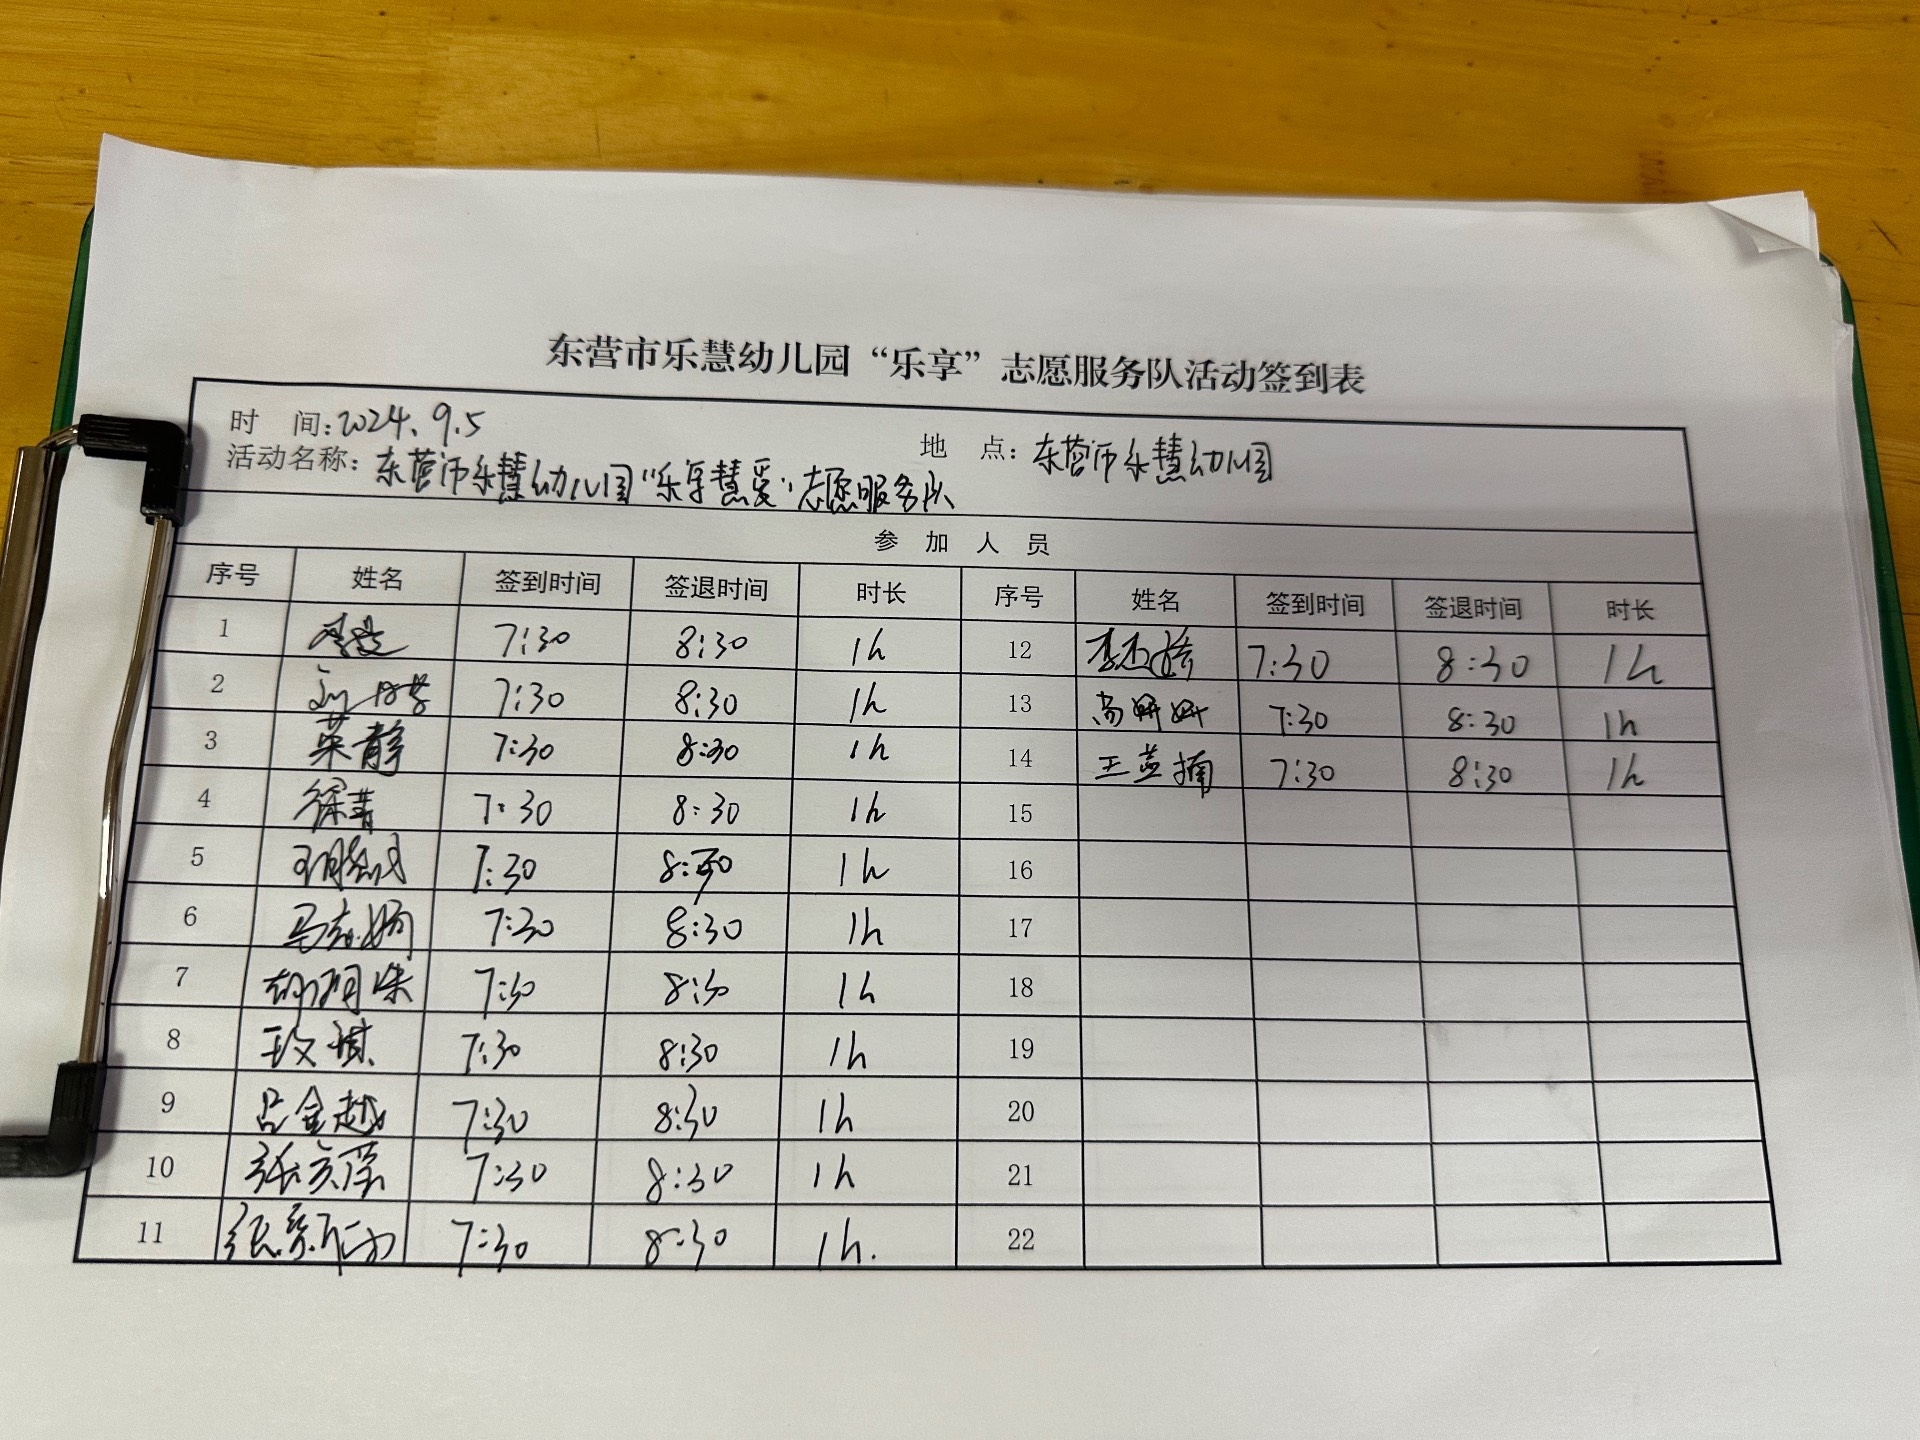 东营市乐慧幼儿园“乐享”志愿服务队活动签到表
时 间:2024.9.5
地 点:东营市乐慧幼儿园
活动名称:东营市乐慧幼儿园“乐享慧爱”志愿服务队
参 加 人 员
序号 姓名 签到时间 签退时间 时长 序号 姓名 签到时间 签退时间 时长
1 7:30 8:30 1h 12 李 7:30 8:30 1h
2 刘 7:30 8:30 1h 13 尚妍妍 7:30 8:30 1h
3 静 7:30 8:30 1h 14 王 楠 7:30 8:30 1h
4 徐菁 7:30 8:30 1h 15
5 7:30 8:30 1h 16
6 马 7:30 8:30 1h 17
7 胡明珠 7:30 8:30 1h 18
8 7:30 8:30 1h 19
9 吕金越 7:30 8:30 1h 20
10 张 7:30 8:30 1h 21
11 张 7:30 8:30 1h. 22